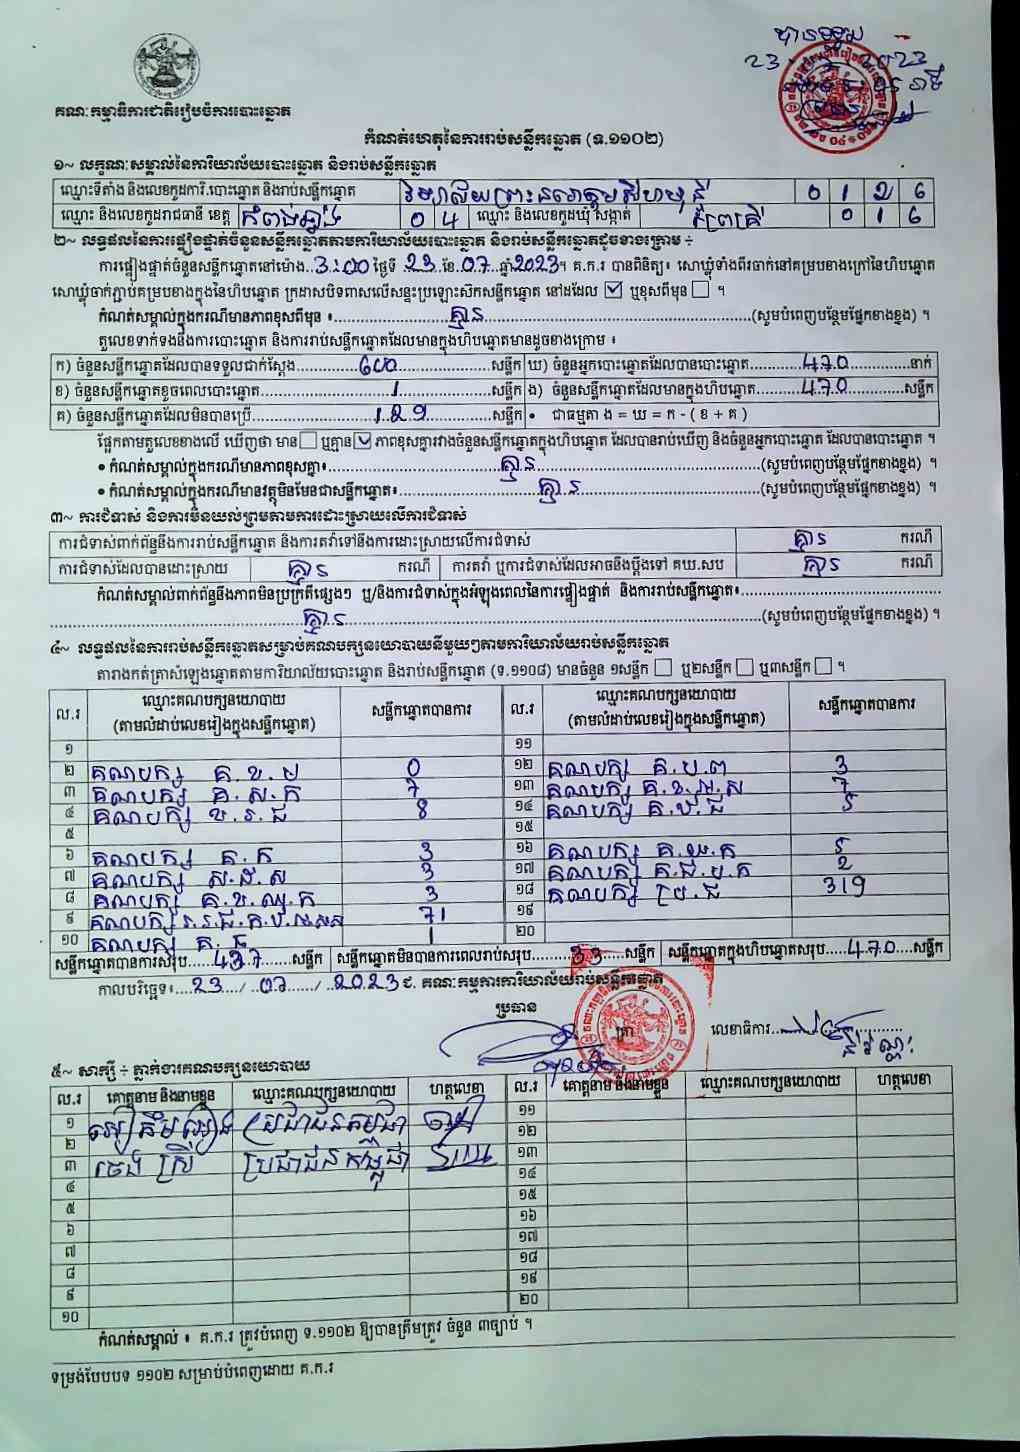 បានទទួល
23
2023
គណៈកម្មាធិការជាតិរៀបចំការបោះឆ្នោត
កំណត់ហេតុនៃការរាប់សន្លឹកឆ្នោត (ទ.១១០២)
១~ លក្ខណៈសម្គាល់នៃការិយាល័យបោះឆ្នោត និងរាប់សន្លឹកឆ្នោត
ឈ្មោះទីតាំង និងលេខកូដការិ.បោះឆ្នោត និងរាប់សន្លឹកឆ្នោត វិទ្យាល័យព្រះនរោត្តមសីហមុនី 0 1 2 6
ឈ្មោះ និងលេខកូដរាជធានី ខេត្ត កំពង់ឆ្នាំង 0 4 ឈ្មោះ និងលេខកូដឃុំ សង្កាត់ ព្រៃគ្រី 0 1 6
២~ លទ្ធផលនៃការផ្ទៀងផ្ទាត់ចំនួនសន្លឹកឆ្នោតតាមការិយាល័យបោះឆ្នោត និងរាប់សន្លឹកឆ្នោតដូចខាងក្រោម ÷
ការផ្ទៀងផ្ទាត់ចំនួនសន្លឹកឆ្នោតនៅម៉ោង..3:00 ថ្ងៃទី 23 ខែ.07 ឆ្នាំ2023។ គ.ក.រ បានពិនិត្យ៖ សោឃ្លុំទាំងពីរចាក់នៅគម្របខាងក្រៅនៃហិបឆ្នោត
សោឃ្លុំចាក់ភ្ជាប់គម្របខាងក្នុងនៃហិបឆ្នោត ក្រដាសបិទពាសលើសន្ទះប្រឡោះស៊កសន្លឹកឆ្នោត នៅដដែល ☑ ឬខុសពីមុន ☐ ។
កំណត់សម្គាល់ក្នុងករណីមានភាពខុសពីមុន ៖ គ្មាន (សូមបំពេញបន្ថែមផ្នែកខាងខ្នង) ។
តួលេខទាក់ទងនឹងការបោះឆ្នោត និងការរាប់សន្លឹកឆ្នោតដែលមានក្នុងហិបឆ្នោតមានដូចខាងក្រោម ៖
ក) ចំនួនសន្លឹកឆ្នោតដែលបានទទួលជាក់ស្តែង 600 សន្លឹក ឃ) ចំនួនអ្នកបោះឆ្នោតដែលបានបោះឆ្នោត 470 នាក់
ខ) ចំនួនសន្លឹកឆ្នោតខូចពេលបោះឆ្នោត 1 សន្លឹក ង) ចំនួនសន្លឹកឆ្នោតដែលមានក្នុងហិបឆ្នោត 470 សន្លឹក
គ) ចំនួនសន្លឹកឆ្នោតដែលមិនបានប្រើ 129 សន្លឹក • ជាធម្មតា ង = ឃ = ក - ( ខ + គ )
ផ្អែកតាមតួលេខខាងលើ ឃើញថា មាន ☐ ឬគ្មាន ☑ ភាពខុសគ្នារវាងចំនួនសន្លឹកឆ្នោតក្នុងហិបឆ្នោត ដែលបានរាប់ឃើញ និងចំនួនអ្នកបោះឆ្នោត ដែលបានបោះឆ្នោត ។
• កំណត់សម្គាល់ក្នុងករណីមានភាពខុសគ្នា៖ គ្មាន (សូមបំពេញបន្ថែមផ្នែកខាងខ្នង) ។
• កំណត់សម្គាល់ក្នុងករណីមានវត្ថុមិនមែនជាសន្លឹកឆ្នោត៖ គ្មាន (សូមបំពេញបន្ថែមផ្នែកខាងខ្នង) ។
៣~ ការជំទាស់ និងការមិនយល់ព្រមតាមការដោះស្រាយលើការជំទាស់
ការជំទាស់ពាក់ព័ន្ធនឹងការរាប់សន្លឹកឆ្នោត និងការតវ៉ាទៅនឹងការដោះស្រាយលើការជំទាស់ គ្មាន ករណី
ការជំទាស់ដែលបានដោះស្រាយ គ្មាន ករណី ការតវ៉ា ឬការជំទាស់ដែលអាចនឹងប្តឹងទៅ គឃ.សប គ្មាន ករណី
កំណត់សម្គាល់ពាក់ព័ន្ធនឹងភាពមិនប្រក្រតីផ្សេងៗ ឬ/និងការជំទាស់ក្នុងអំឡុងពេលនៃការផ្ទៀងផ្ទាត់ និងការរាប់សន្លឹកឆ្នោត៖
គ្មាន (សូមបំពេញបន្ថែមផ្នែកខាងខ្នង) ។
៤~ លទ្ធផលនៃការរាប់សន្លឹកឆ្នោតសម្រាប់គណបក្សនយោបាយនីមួយៗតាមការិយាល័យរាប់សន្លឹកឆ្នោត
តារាងកត់ត្រាសំឡេងឆ្នោតតាមការិយាល័យបោះឆ្នោត និងរាប់សន្លឹកឆ្នោត (ទ.១១០៨) មានចំនួន ១សន្លឹក ☐ ឬ២សន្លឹក ☐ ឬ៣សន្លឹក ☐ ។
ល.រ ឈ្មោះគណបក្សនយោបាយ (តាមលំដាប់លេខរៀងក្នុងសន្លឹកឆ្នោត) សន្លឹកឆ្នោតបានការ ល.រ ឈ្មោះគណបក្សនយោបាយ (តាមលំដាប់លេខរៀងក្នុងសន្លឹកឆ្នោត) សន្លឹកឆ្នោតបានការ
១ ១១
២ គណបក្ស គ.ខ.ម 0 ១២ គណបក្ស គ.ប.ព 3
៣ គណបក្ស គ.ស.ក 7 ១៣ គណបក្ស គ.ខ.អ.ស 7
៤ គណបក្ស ឃ.រ.ជ 8 ១៤ គណបក្ស គ.ឃ.ជ 5
៥ ១៥
៦ គណបក្ស គ.ក 3 ១៦ គណបក្ស គ.ឈ.ក 5
៧ គណបក្ស ស.ជ.ស 3 ១៧ គណបក្ស គ.ជ.ប.ក 2
៨ គណបក្ស គ.ខ.ឈ.ក 3 ១៨ គណបក្ស ប្រ.ជ 319
៩ គណបក្ស 71 ១៩
១០ គណបក្ស គ.ធ 1 ២០
សន្លឹកឆ្នោតបានការសរុប 437 សន្លឹក សន្លឹកឆ្នោតមិនបានការពេលរាប់សរុប 33 សន្លឹក សន្លឹកឆ្នោតក្នុងហិបឆ្នោតសរុប 470 សន្លឹក
កាលបរិច្ឆេទ៖ 23 / 07 / 2023 ជ. គណៈកម្មការការិយាល័យរាប់សន្លឹកឆ្នោត
ប្រធាន
ត្រា លេខាធិការ
៥~ សាក្សី ÷ ភ្នាក់ងារគណបក្សនយោបាយ
ល.រ គោត្តនាម និងនាមខ្លួន ឈ្មោះគណបក្សនយោបាយ ហត្ថលេខា ល.រ គោត្តនាម និងនាមខ្លួន ឈ្មោះគណបក្សនយោបាយ ហត្ថលេខា
១ ប្រជាជនកម្ពុជា ១១
២ ១២
៣ ចេង ស្រី ប្រជាជនកម្ពុជា ១៣
៤ ១៤
៥ ១៥
៦ ១៦
៧ ១៧
៨ ១៨
៩ ១៩
១០ ២០
កំណត់សម្គាល់ ៖ គ.ក.រ ត្រូវបំពេញ ទ.១១០២ ឱ្យបានត្រឹមត្រូវ ចំនួន ៣ច្បាប់ ។
ទម្រង់បែបបទ ១១០២ សម្រាប់បំពេញដោយ គ.ក.រ